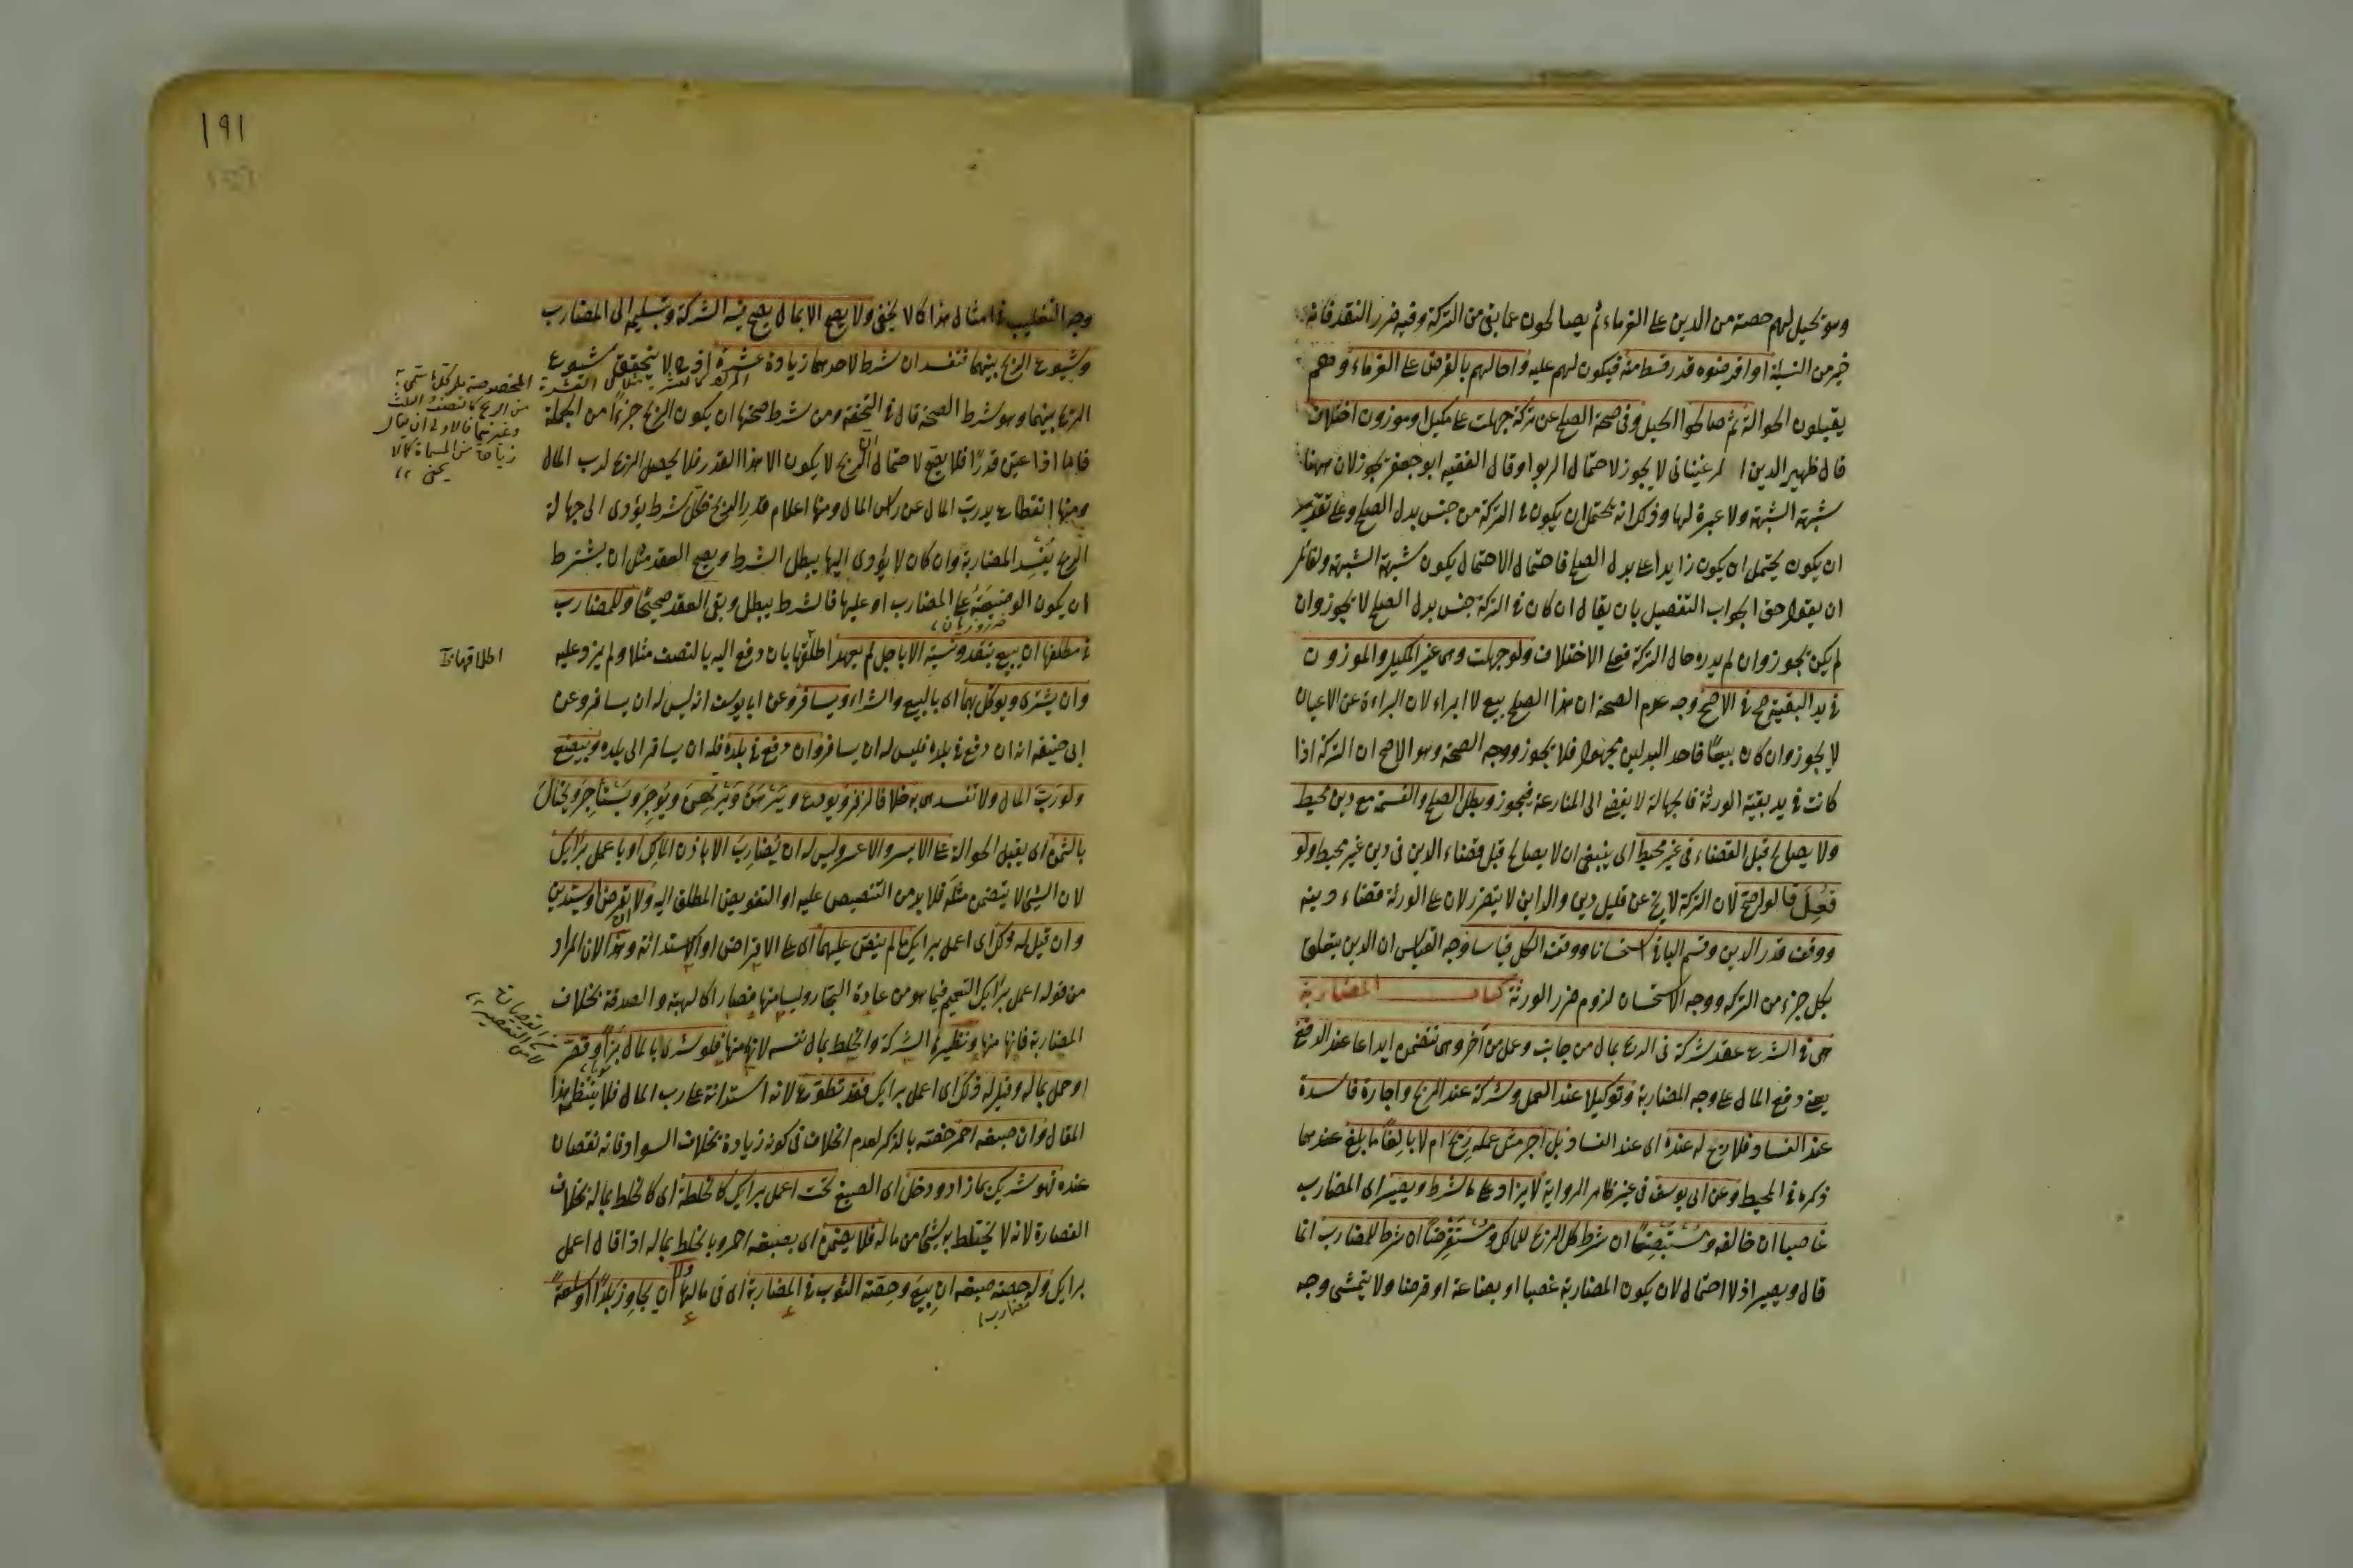 وهو تحيل لهم حصته من الدين على الغرماء ثم يصالحون عما بقى من التركة وفيه ضرر النقد فانه
خير من النسيئة او اقرضوه قدر قسط منه فيكون لهم عليه واحالهم بالقرض على الغرماء وهم
يقبلون الحوالة ثم صالحوا الحيل وفى صحة الصلح عن تركة جهلت على مكيل او موزون اختلاف
قال ظهير الدين المرغينانى لا يجوز لاحتمال الربوا وقال الفقيه ابو جعفر يجوز لان ههنا
شبهة الشبهة ولا عبرة لها وذكر انه يحتمل ان يكون فى التركة من جنس بدل الصلح وعلى تقدير
ان يكون يحتمل ان يكون زايدا على بدل الصلح فاحتمال الاحتمال يكون شبهة الشبهة ولقائل
ان يقول حق الجواب التفصيل بان يقال ان كان فى التركة جنس بدل الصلح لا يجوز وان
لم يكن يجوز وان لم يدر حال التركة فعلى الاختلاف ولو جهلت وهى غير المكيل والموزون
فى يد البقية صح فى الاصح وجه عدم الصحة ان هذا الصلح بيع لا ابراء لان البراءة عن الاعيان
لا يجوز وان كان بيعًا فاحد البدلين مجهول فلا يجوز ووجه الصحة وهو الاصح ان التركة اذا
كانت فى يد بقية الورثة فالجهالة لا يفضى الى المنازعة فيجوز وبطل الصلح والقسمة مع دين محيط
ولا يصالح قبل القضاء فى غير محيط اى ينبغى ان لا يصالح قبل قضاء الدين فى دين غير محيط ولو
فُعِلَ قالوا صح لان التركة لا يخ عن قليل دين والداين لا يتضرر لان على الورثة قضاء دينه
ووقف قدر الدين وقسم الباقى استحسانا ووقف الكل قياسا وجه القياس ان الدين يتعلق
بكل جزء من التركة ووجه الاستحسان لزوم ضرر الورثة كتاب المضاربة
هى فى الشرع عقد شركة فى الربح بمال من جانب وعمل من آخر وهى تتضمن ايداعا عند الدفع
يعنى دفع المال على وجه المضاربة وتوكيلا عند العمل وشركة عند الربح واجارة فاسدة
عند الفساد فلا ربح له عنده اى عند الفساد بل اجر مثل عمله رَبِحَ ام لا بالِغًا ما بلغ عندهما
ذكره فى المحيط وعن ابى يوسف فى غير ظاهر الرواية لا يزاد على ما شرط ويصير اى المضارب
غاصبا ان خالف ومُسْتَبْضِعًا ان شرط كل الربح للمالك ومُسْتَقْرِضًا ان شرط للمضارب انما
قال ويصير اذ لا احتمال لان يكون المضاربة غصبا او بضاعة او قرضا ولا يتمشى وجه
١٩١
وجه التغليب فى امثال هذا كما لا يخفى ولا يصح الا بمال يصح فيه الشركة وتسليمه الى المضارب
وشيوع الربح بينهما فتفسد ان شرط لاحدهما زيادة عشرة اذ ح لا يتحقق شيوع
الربح بينهما وهو شرط الصحة قال فى التحفة ومن شرط صحتها ان يكون الربح جزءًا من الجملة
فاما اذا عيّن قدرًا فلا يصح لاحتمال ان الربح لا يكون الا هذا القدر فلا يحصل الربح لرب المال
ومنها انقطاع يد رب المال عن راس المال ومنها اعلام قدر الربح فكل شرط يؤدى الى جهالة
الربح يُفْسِد المضاربة وان كان لا يؤدى اليها يبطل الشرط ويصح العقد مثل ان يشترط
ان يكون الوضيعة على المضارب او عليها فالشرط يبطل وبقى العقد صحيحًا وللمضارب
ضرر وزيان
فى مطلقها ان يبيع بنقد ونسيئة الا باجل لم يعهد اطلقها بان دفع اليه بالنصف مثلا ولم يزد عليه
اطلاقها
وان يشترى ويوكّل بهما اى بالبيع والشراء ويسافر وعن ابى يوسف انه ليس له ان يسافر وعن
ابى حنيفه انه ان دفع فى بلده فليس له ان يسافر وان دفع فى بلدة فله ان يسافر الى بلده ويبضع
ولو رَبَّ المال ولا تفسد هى به خلافا لزفر ويودع ويَرْهَن ويَرْتَهِن ويُوجِرَ ويَسْتَأجِرَ ويَحْتالَ
بالثمن اى يقبل الحوالة على الايسر والاعسر وليس له ان يُضارِبَ الا باذن المالك او باعمل برأيك
لان الشئ لا يتضمن مثله فلا بد من التنصيص عليه او التفويض المطلق اليه ولا يقرض او يستدين
وان قيل له ذكر اى اعمل برايك ما لم ينص عليهما اى على الاقراض او الاستدانة وهذا لان المراد
من قوله اعمل برأيك التعميم فيما هو من عادة التجار وليسا منها فصارا كالهبة والصدقة بخلاف
المضاربة فانها منها ونظيرها الشركة والخلط بمال نفسه لانهما منها فلو شرى بالمال بزًا وقصّر
او حمل بماله وقيل له ذلك اى اعمل برايك فقد تطوّع لانه استدانة على رب المال فلا ينتظمه هذا
المقال وان صبغه احمر خصّه بالذكر لعدم الخلاف فى كونه زيادة بخلاف السواد فانه نقصان
عنده فهو شريك بما زاد ودخل اى الصبغ تحت اعمل برايك كالخلطة اى كالخلط بماله بخلاف
القصارة لانه لا يختلط به شئ من ماله فلا يضمن اى بصبغه احمر وبالخلط بماله اذا قال اعمل
برايك وله حصة صبغه ان بِيعَ وحِصّة الثوب فى المضاربة اى فى مالها ولا ان يجاوز بلدًا او سلعة
مضارب